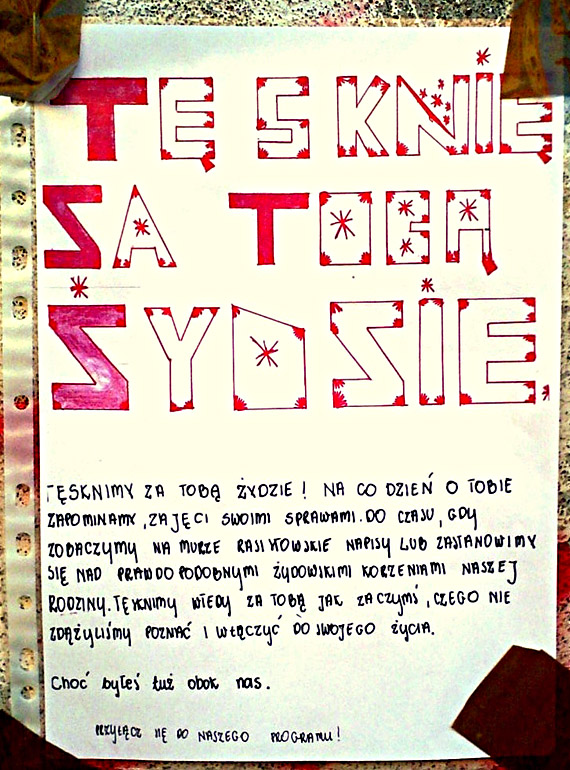 TĘSKNIĘ
ZA TOBĄ
ŻYDZIE
TĘSKNIMY ZA TOBĄ ŻYDZIE! NA CO DZIEŃ O TOBIE
ZAPOMINAMY, ZAJĘCI SWOIMI SPRAWAMI. DO CZASU, GDY
ZOBACZYMY NA MURZE RASISTOWSKIE NAPISY LUB ZASTANOWIMY
SIĘ NAD PRAWDOPODOBNYMI ŻYDOWSKIMI KORZENIAMI NASZEJ
RODZINY. TĘSKNIMY WTEDY ZA TOBĄ JAK ZA CZYMŚ, CZEGO NIE
ZDĄŻYLIŚMY POZNAĆ I WŁĄCZYĆ DO SWOJEGO ŻYCIA.
Choć byłeś tuż obok nas.
PRZYŁĄCZ SIĘ DO NASZEGO PROGRAMU!